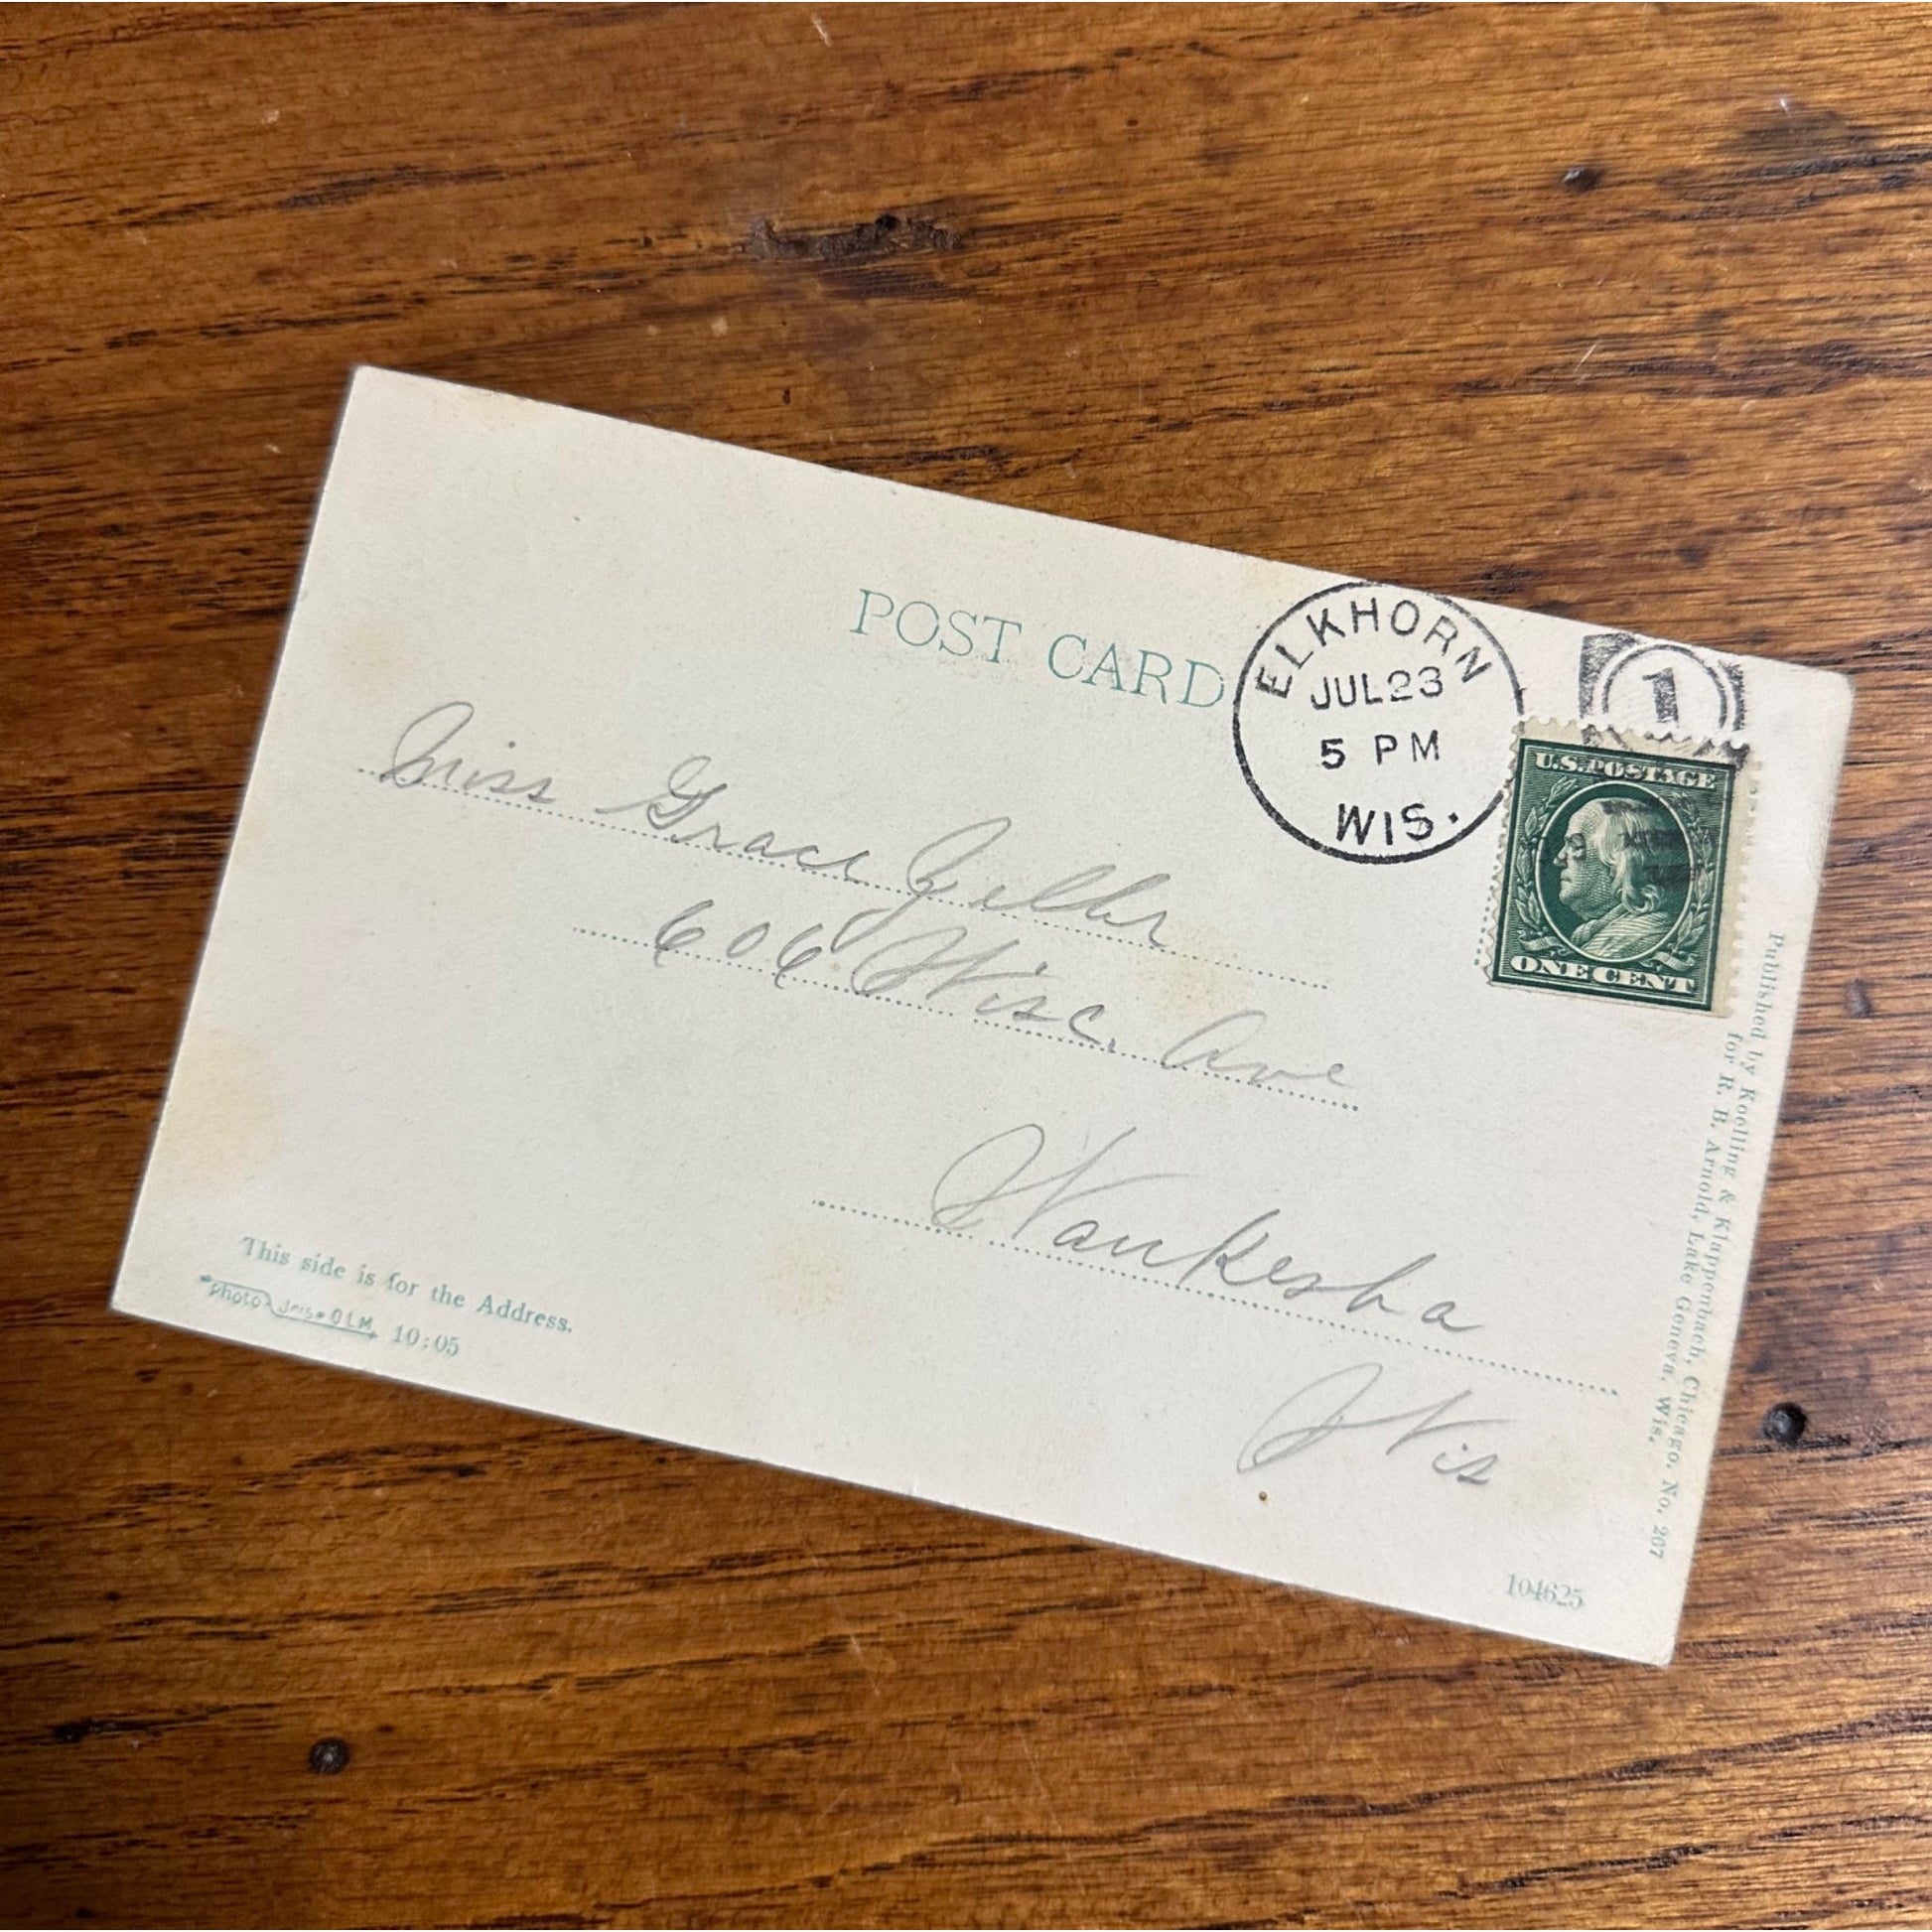 POST CARD
ELKHORN
JUL 23
5 PM
WIS.
1
U.S. POSTAGE
ONE CENT
Miss Grace Zeller
606 Wisc. Ave
Waukesha
Wis
This side is for the Address.
Photo-Iris-OLM. 10:05
Published by Koelling & Klappenbach, Chicago. No. 267
for R. B. Arnold, Lake Geneva, Wis.
104625